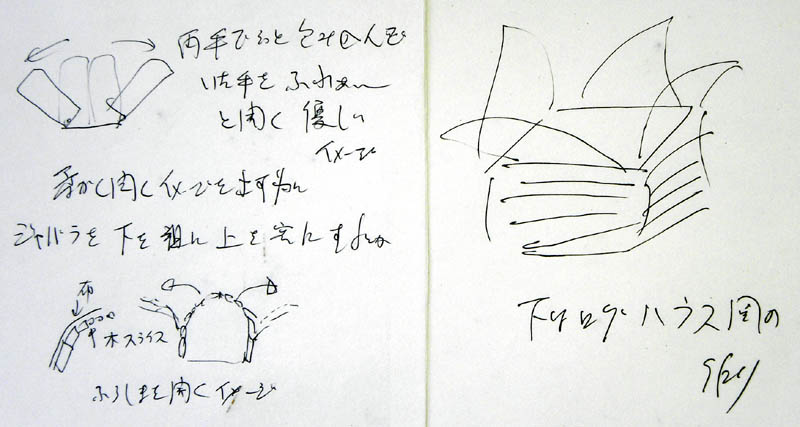 両手でそっと包み込んで
いた手をふわぁー
と開く優しい
イメージ
柔かく開くイメージを出す為に
ジャバラを下を粗に上を密にする
布
木スライス
ふろしきを開くイメージ
下はログハウス風の